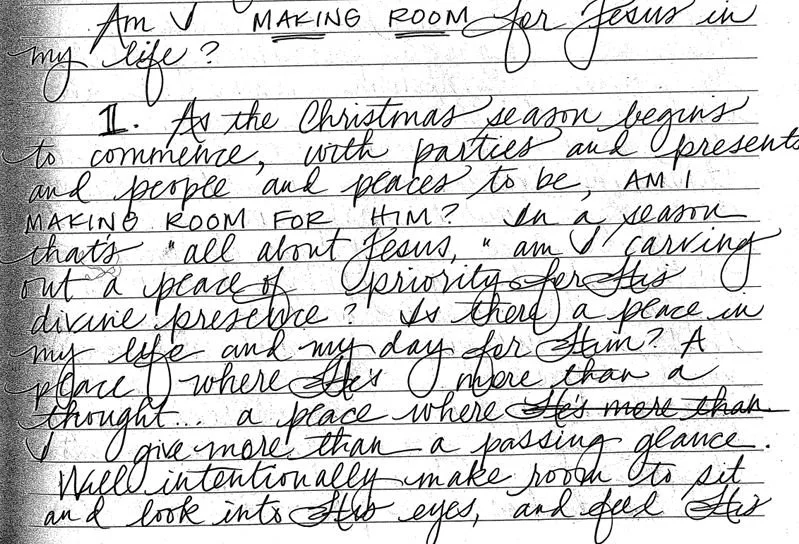 Am I MAKING ROOM for Jesus in
my life?
1. As the Christmas season begins
to commence, with parties and presents
and people and places to be, AM I
MAKING ROOM FOR HIM? In a season
that's "all about Jesus," am I carving
out a place of priority for His
divine presence? Is there a place in
my life and my day for Him? A
place where He's more than a
thought... a place where He's more than
I give more than a passing glance.
Will intentionally make room to sit
and look into His eyes, and feel His